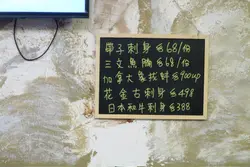 帶子刺身 $68/份
三文魚腩 $68/份
加拿大象拔蚌 $900up
花金古刺身 $498
日本和牛刺身 $388